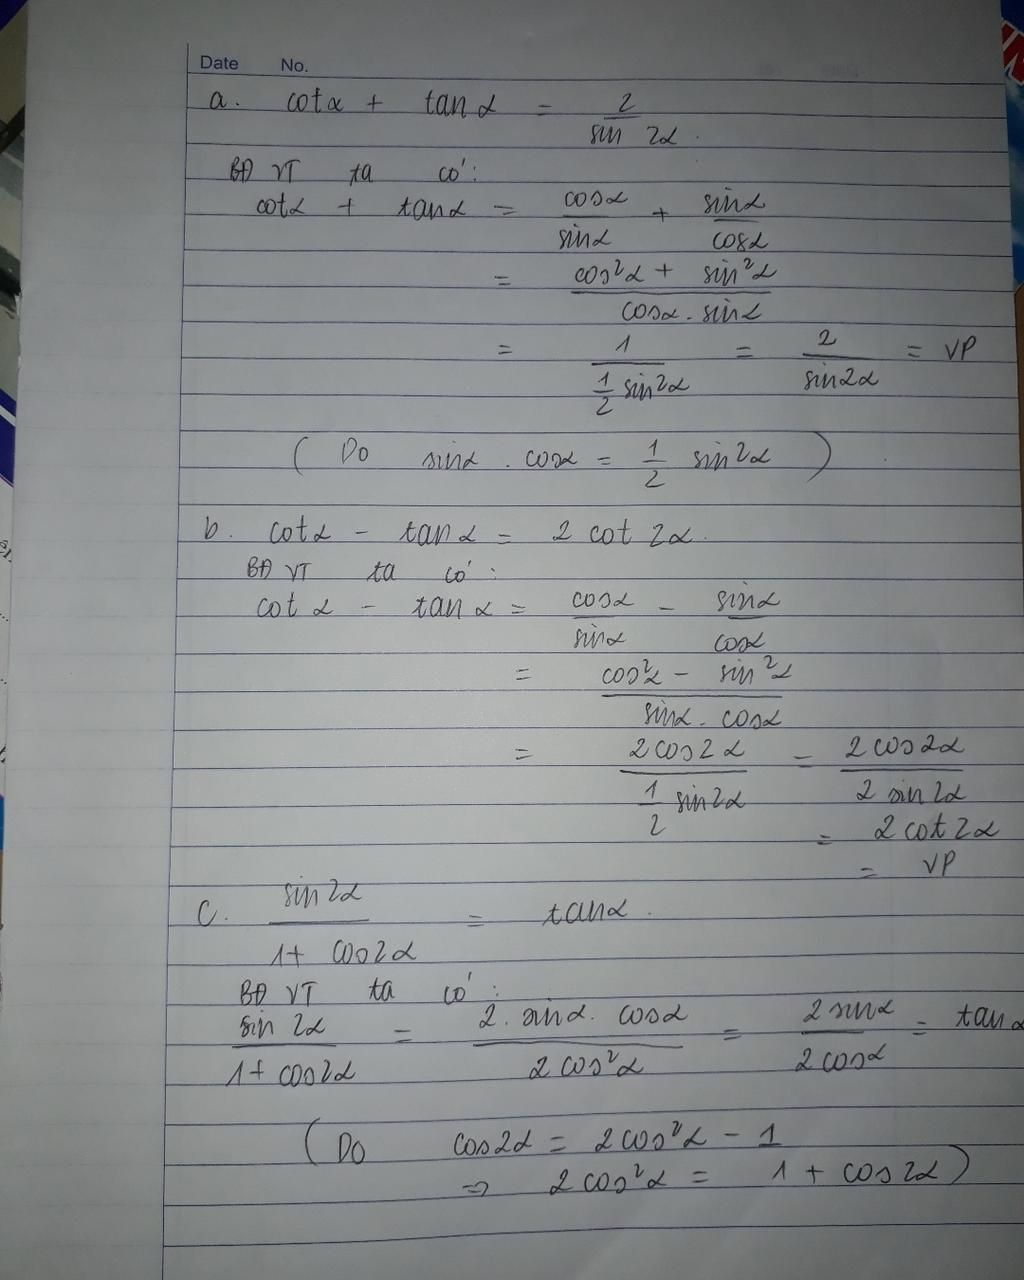 Date No.
a. cotα + tanα = 2/sin 2α.
BĐ VT ta có:
cotα + tanα = cosα/sinα + sinα/cosα
= (cos²α + sin²α)/(cosα . sinα)
= 1/(1/2 sin2α) = 2/sin2α = VP
(Do sinα . cosα = 1/2 sin2α)
b. cotα - tanα = 2 cot 2α.
BĐ VT ta có:
cot α - tan α = cosα/sinα - sinα/cosα
= (cos²α - sin²α)/(sinα . cosα)
= 2cos2α/(1/2 sin2α) = 2cos2α/(2 sin2α)
= 2cot2α
= VP
c. sin2α/(1+ cos2α) = tanα.
BĐ VT ta có:
sin 2α/(1+ cos2α) = (2. sinα. cosα)/(2cos²α) = 2sinα/2cosα = tanα
(Do cos2α = 2cos²α - 1
⇒ 2cos²α = 1 + cos2α)